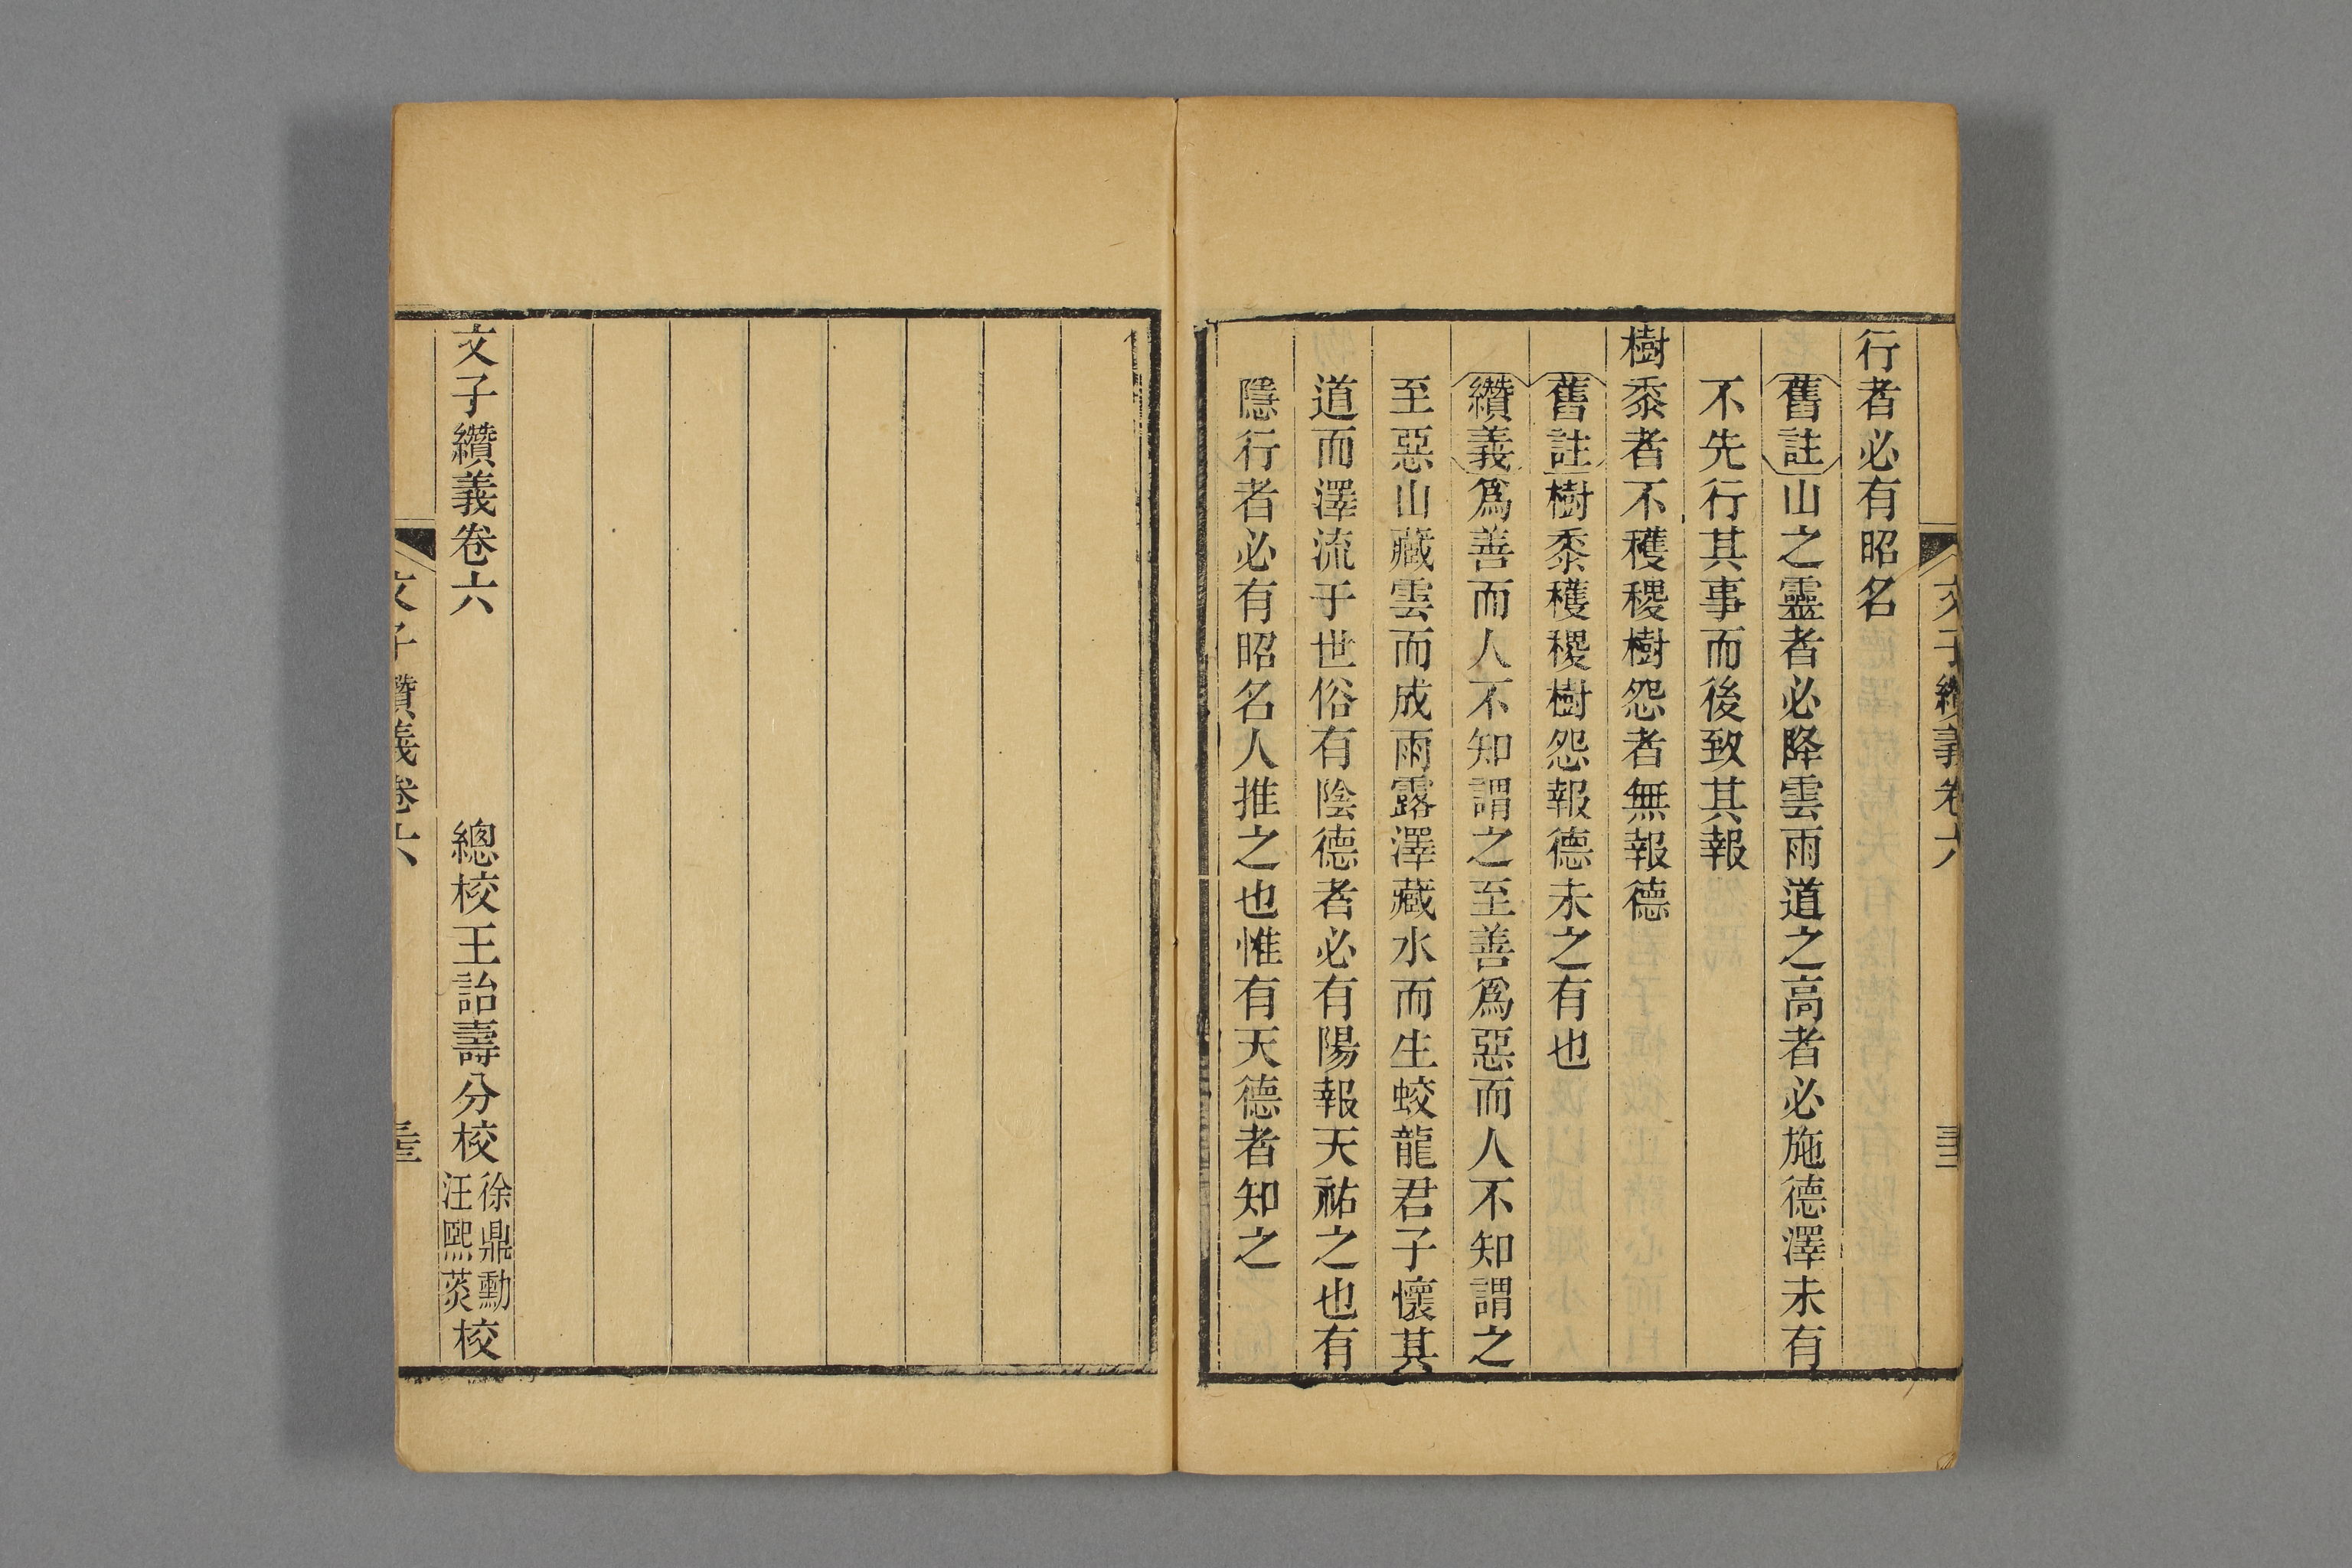 文子纘義卷六
行者必有昭名
舊註山之靈者必降雲雨道之高者必施德澤未有
不先行其事而後致其報
樹黍者不穫稷樹怨者無報德
舊註樹黍穫稷樹怨報德未之有也
纘義爲善而人不知謂之至善爲惡而人不知謂之
至惡山藏雲而成雨露澤藏水而生蛟龍君子懷其
道而澤流于世俗有陰德者必有陽報天祐之也有
隱行者必有昭名人推之也惟有天德者知之
文子纘義卷六
總校王詒壽分校徐鼎勳
汪熙葓校
文子纘義卷六